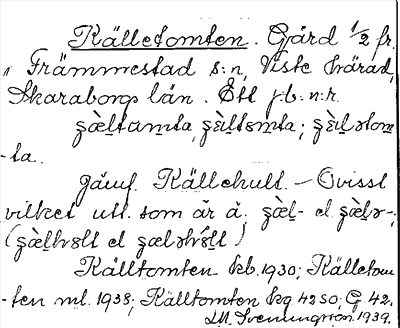 Källetomten. Gård 1/2 fr.
i Främmestad s:n, Viste härad,
Skaraborgs län. Ett j.b.n:r.
ʂæ̀ltɑmta, ʂɛ̀iltɷmta; ʂɛ̀ilətom-
-ta.
Jämf. Källehult. – Ovisst
vilket utt. som är ä; ʂæ̀l- el. ʂæ̀lə-;
(ʂæ̀lhɷlt el ʂæləhɷ́lt)
Källtomten kb. 1930; Källetom
-ten ml. 1938; Källtomten kg 4250; G 42.
1939.